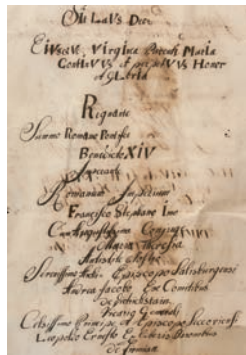 Sit LaVs Deo
EiVsqVe Virgini Parenti Maria
ContInVVs et perpetVVs Honor
et gLoria
Regnante
Summo Romano Pontifice
Benedicto XIV
Romanum Imperium
Francisco Stephano Imo
Cum Augustissima Conjuge
Maria Theresia
Episcopo Salisburgensi
Andrea Jacobo Ex Comitibus
de Dietrichstain
Vicario Generali
Celsissimo Principe et Episcopo Seccoviensi
Leopoldo Ernesto Ex Liberis Baronibus
de Firmian